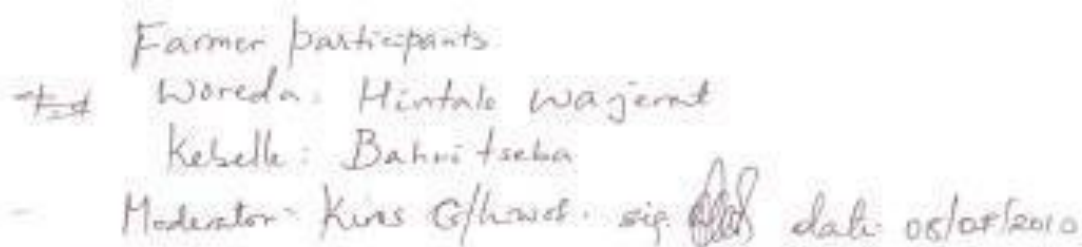 Farmer participants
Woreda: Hintalo Wajerat
Kebelle: Bahri tseba
Moderator: Kiros G/hiwot. sig. date 08/08/2010